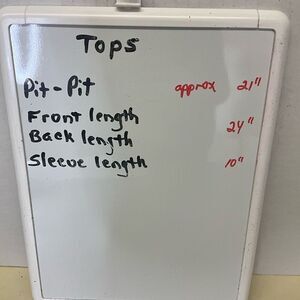 Tops
Pit-Pit approx 21"
Front length
Back length 24"
Sleeve length 10"